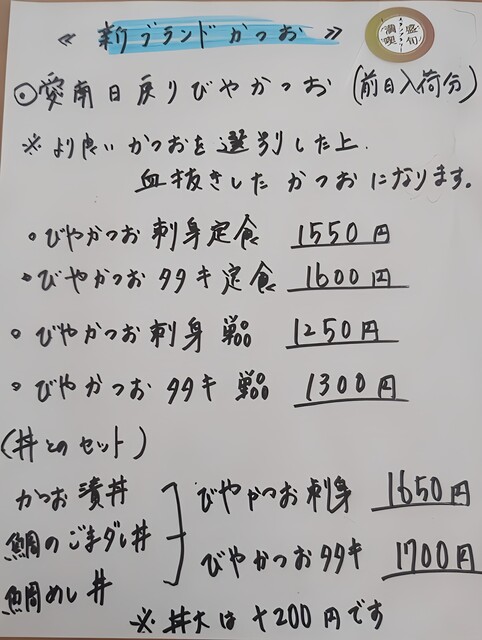 《 新ブランドかつお 》
満喫 盛旬 スタンプラリー
◎愛南日戻りびやかつお(前日入荷分)
※より良いかつおを選別した上、
血抜きしたかつおになります。
・びやかつお刺身定食 1550円
・びやかつおタタキ定食 1600円
・びやかつお刺身単品 1250円
・びやかつおタタキ単品 1300円
(丼とのセット)
かつお漬丼
びやかつお刺身 1650円
鯛のごまダレ丼
びやかつおタタキ 1700円
鯛めし丼
※丼大は+200円です